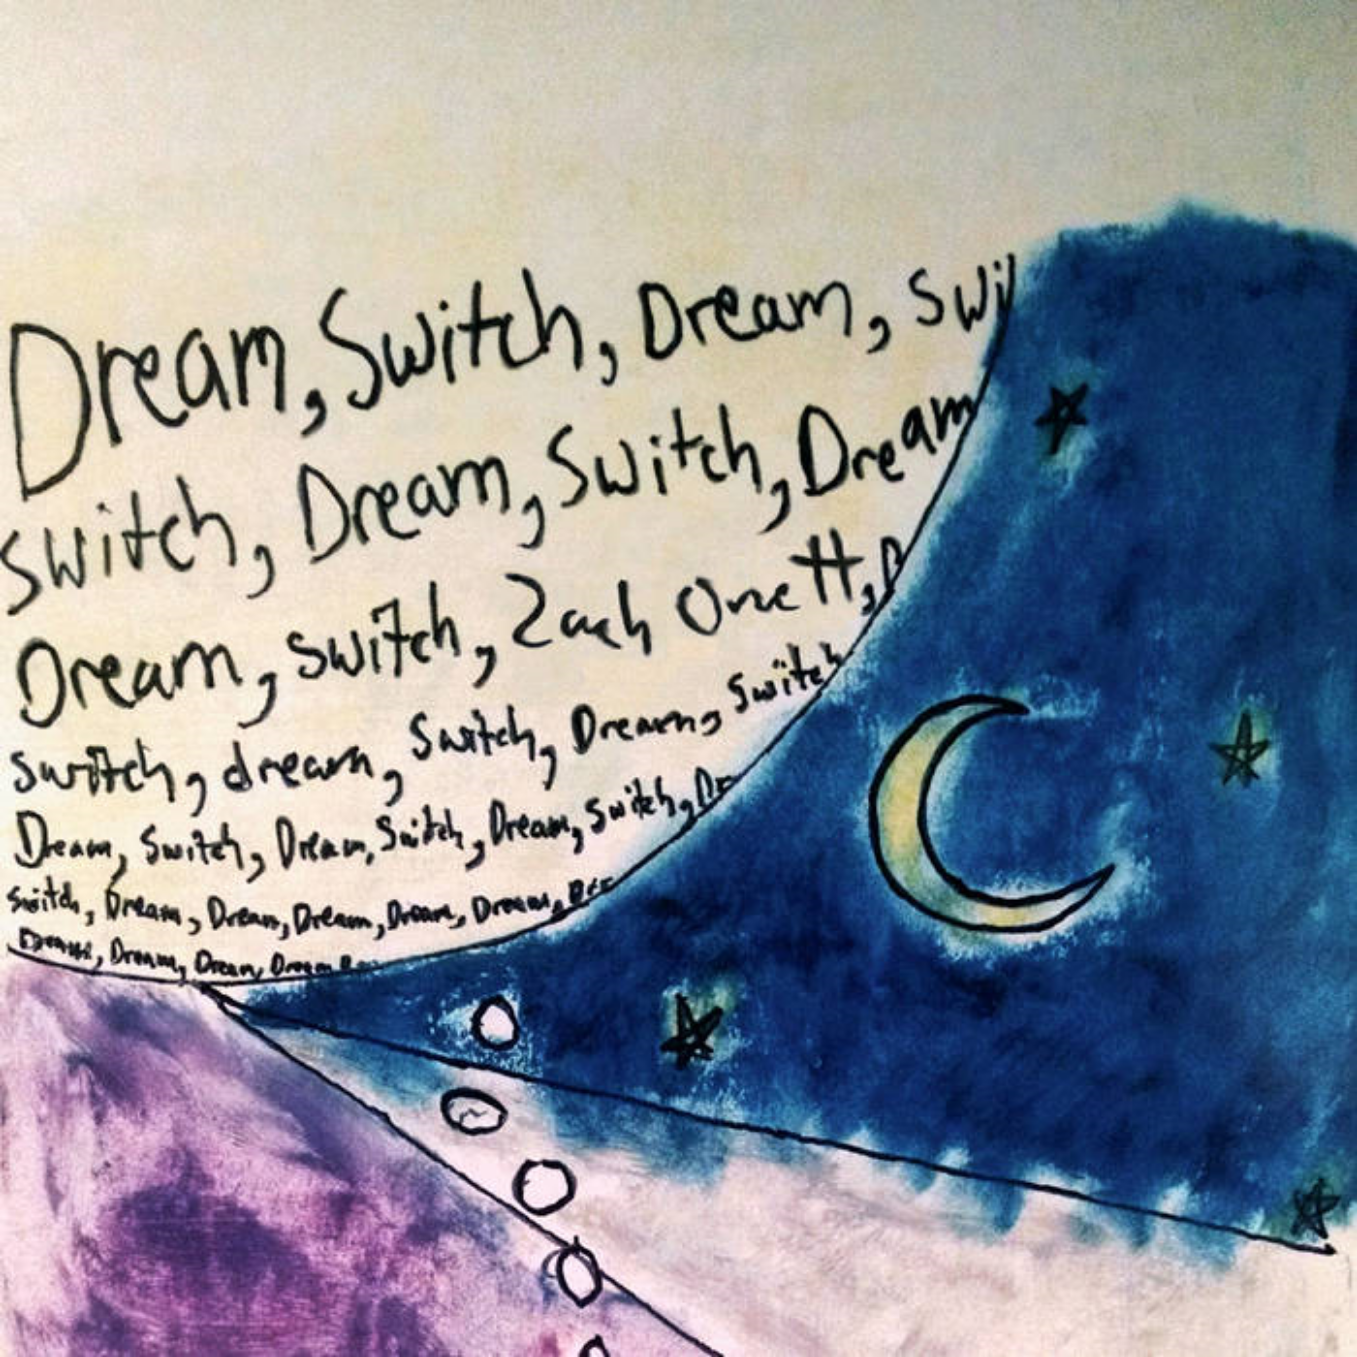 Dream, Switch, Dream, swi
switch, Dream, Switch, Dream
Dream, switch, Zach Onett, D
switch, dream, switch, Dream, switch
Dream, switch, Dream, Switch, Dream, switch, Dr
switch, Dream, Dream, Dream, Dream, Dream, Dre
Dream, Dream, Dream, Dream